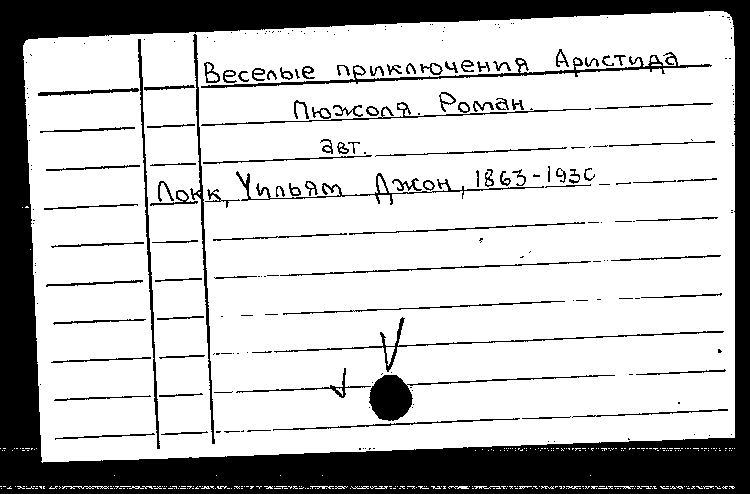 Веселые приключения Аристида
Пюжоля. Роман.
авт.
Локк, Уильям Джон, 1863-1930